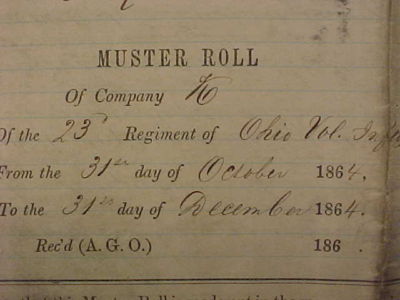 MUSTER ROLL
Of Company K
Of the 23d Regiment of Ohio Vol. Infty
From the 31st day of October 1864,
To the 31st day of December 1864.
Rec'd (A. G. O.) 186 .
Muster Roll is made out in the